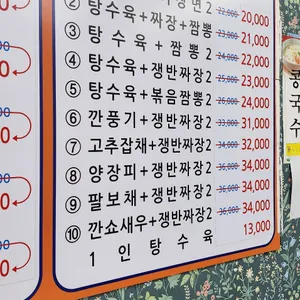 ② 탕수육+짜장면2 22,000 20,000
② 탕수육+짜장+짬뽕 23,000 21,000
③ 탕수육+짬뽕2 24,000 22,000
④ 탕수육+쟁반짜장2 25,000 23,000
⑤ 탕수육+볶음짬뽕2 26,000 24,000
⑥ 깐풍기+쟁반짜장2 33,000 31,000
⑦ 고추잡채+쟁반짜장2 34,000 32,000
⑧ 양장피+쟁반짜장2 36,000 34,000
⑨ 팔보채+쟁반짜장2 36,000 34,000
⑩ 깐쇼새우+쟁반짜장2 36,000 34,000
1인탕수육 13,000
콩국수